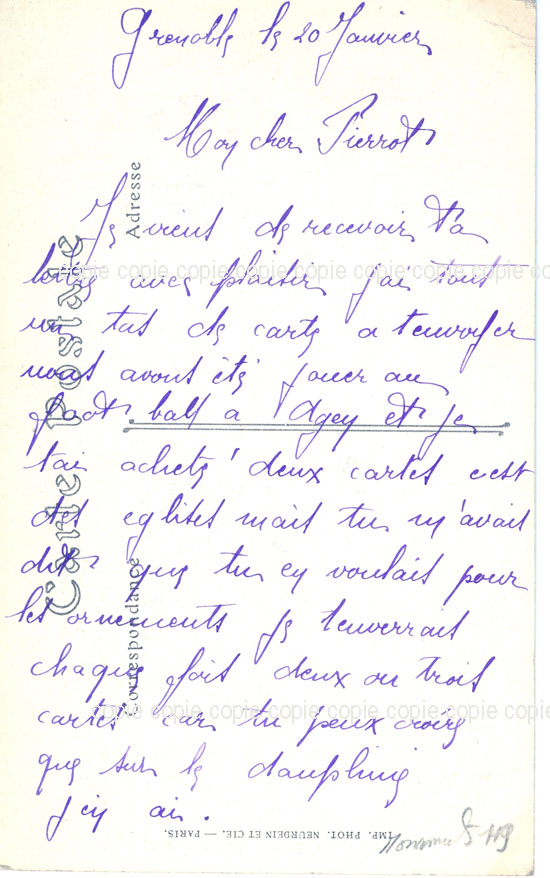 Grenoble le 20 Janvier
Mon cher Pierrot
Je vient de recevoir ta
lettre avec plaisir j'ai tout
un tas de carte a t'envoyer
nous avont été jouer au
foot ball a Agey et je
t'ai acheté deux cartes c'est
des eglises mais tu m'avais
dit que tu en voulais pour
les ornements je t'enverrais
chaque fois deux ou trois
cartes car tu peux croire
que sur le dauphine
j'en ai.
Carte Postale
Adresse
Correspondance
IMP. PHOT. NEURDEIN ET CIE. — PARIS.
copie copie copie copie copie copie copie copie copie
copie copie copie copie copie copie copie copie